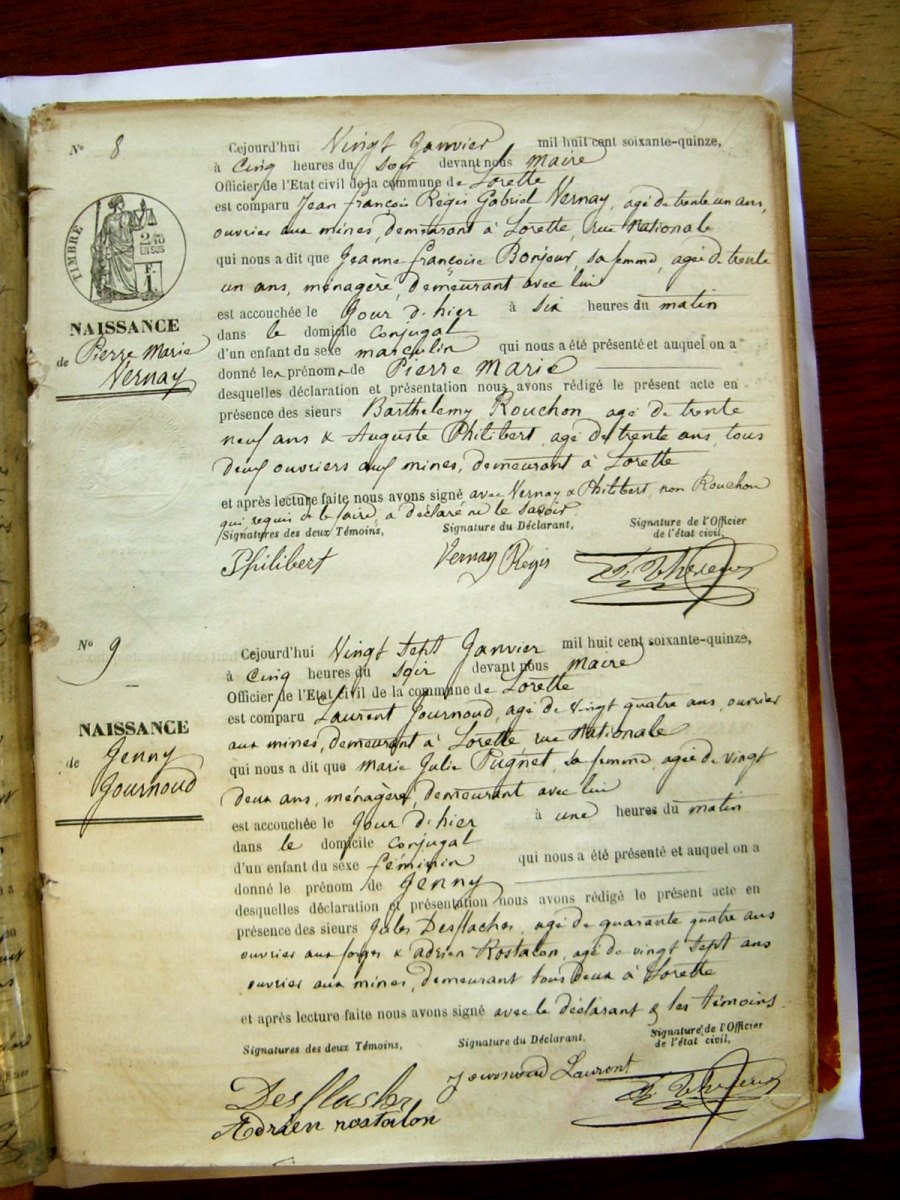 N° 8
Cejourd'hui Vingt Janvier mil huit cent soixante-quinze,
à Cinq heures du Soir devant nous Maire
Officier de l'Etat civil de la commune de Lorette
est comparu Jean François Régis Gabriel Vernay, agé de trente un ans,
ouvrier aux mines, demeurant à Lorette, rue Nationale
qui nous a dit que Jeanne françoise Bonjour, sa femme, agée de trente
un ans, ménagère, demeurant avec lui
est accouchée le Jour d'hier à six heures du matin
dans le domicile conjugal
d'un enfant du sexe masculin qui nous a été présenté et auquel on a
donné les prénoms de Pierre Marie
desquelles déclaration et présentation nous avons rédigé le présent acte en
présence des sieurs Barthelemy Rouchon agé de trente
neuf ans & Auguste Philibert, agé de trente ans, tous
deux ouvriers aux mines, demeurant à Lorette
et après lecture faite nous avons signé avec Vernay & Philibert, non Rouchon
qui requis de le faire, a déclaré ne le savoir.
Signatures des deux Témoins, Signature du Déclarant, Signature de l'Officier
de l'état civil,
Philibert Vernay Régis
TIMBRE
2/10
EN SUS
F.
1
NAISSANCE
de Pierre Marie
Vernay
N° 9
Cejourd'hui Vingt Sept Janvier mil huit cent soixante-quinze,
à Cinq heures du Soir devant nous Maire
Officier de l'Etat civil de la commune de Lorette
est comparu Laurent Journoud, agé de vingt quatre ans, ouvrier
aux mines, demeurant à Lorette, rue Nationale
qui nous a dit que Marie Julie Pugnet, sa femme, agée de vingt
deux ans, ménagère, demeurant avec lui
est accouchée le Jour d'hier à une heures du matin
dans le domicile conjugal
d'un enfant du sexe féminin qui nous a été présenté et auquel on a
donné le prénom de Jenny
desquelles déclaration et présentation nous avons rédigé le présent acte en
présence des sieurs Jules Desflaches, agé de quarante quatre ans
ouvrier aux forges & Adrien Rostalon, agé de vingt sept ans
ouvrier aux mines, demeurant tous deux à Lorette
et après lecture faite nous avons signé avec le déclarant & les témoins.
Signatures des deux Témoins, Signature du Déclarant, Signature de l'Officier
de l'état civil,
Journoud Laurent
Adrien rostalon
NAISSANCE
de Jenny
Journoud